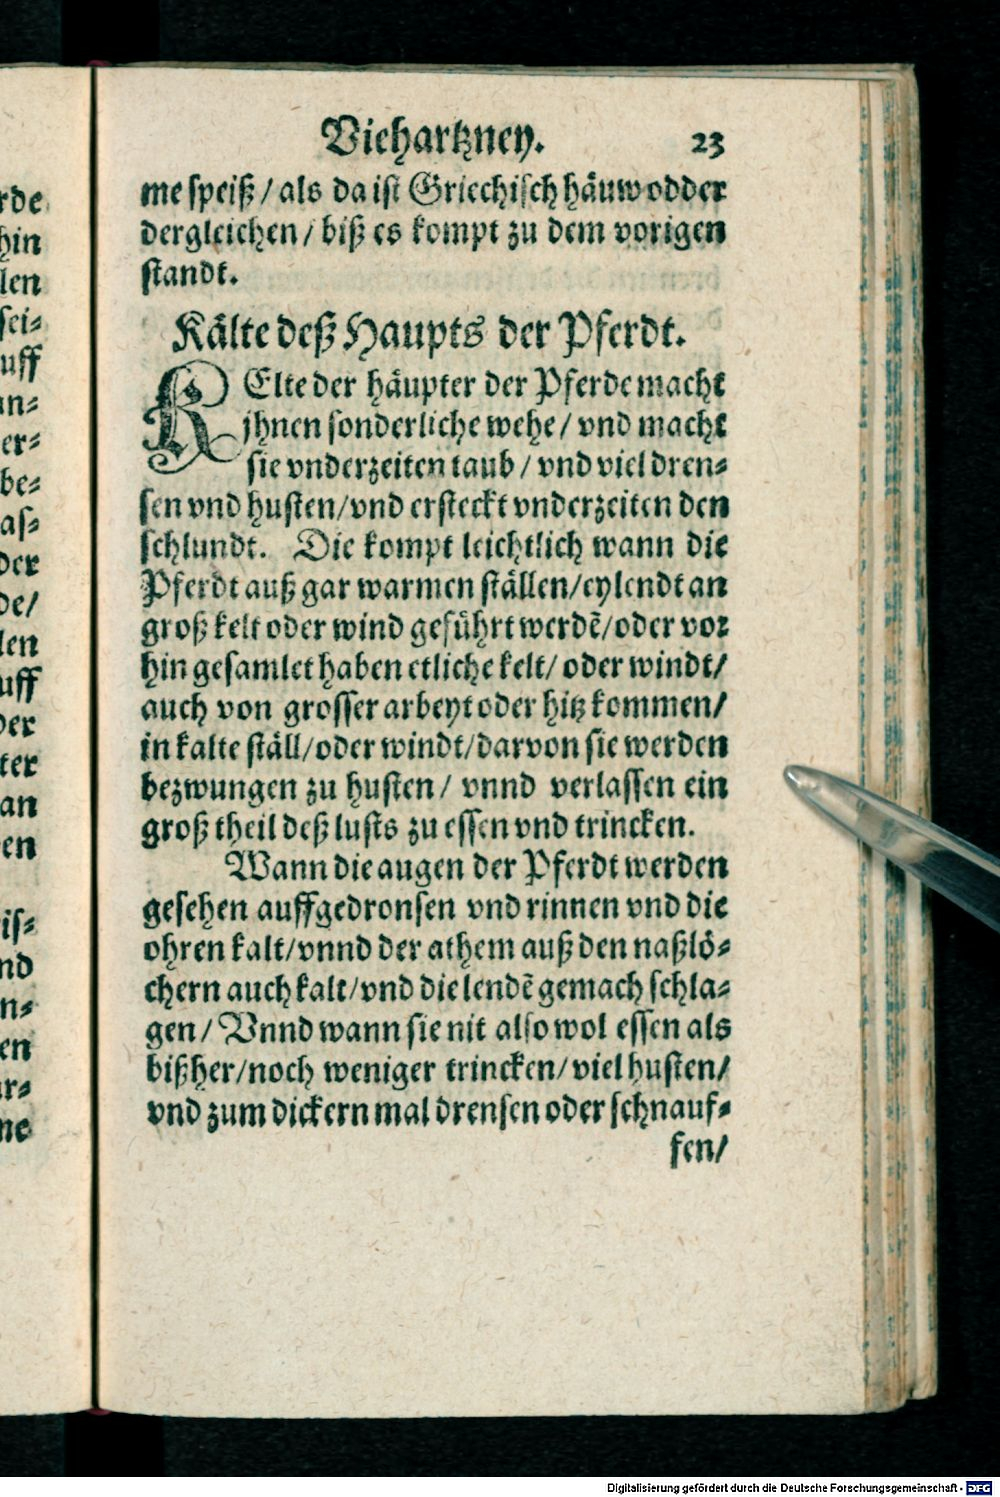 Viehartzney. 23
me speiß / als da ist Griechisch häuw odder
dergleichen / biß es kompt zu dem vorigen
standt.
Kälte deß Haupts der Pferdt.
KElte der häupter der Pferde macht
jhnen sonderliche wehe / vnd macht
sie vnderzeiten taub / vnd viel dren⸗
sen vnd husten/vnd ersteckt vnderzeiten den
schlundt. Die kompt leichtlich wann die
Pferdt auß gar warmen ställen/eylendt an
groß kelt oder wind geführt werdẽ/oder vor
hin gesamlet haben etliche kelt/ oder windt/
auch von grosser arbeyt oder hitz kommen/
in kalte ställ/oder windt/darvon sie werden
bezwungen zu husten / vnnd verlassen ein
groß theil deß lusts zu essen vnd trincken.
Wann die augen der Pferdt werden
gesehen auffgedronsen vnd rinnen vnd die
ohren kalt/vnnd der athem auß den naßlö⸗
chern auch kalt/vnd die lendẽ gemach schla⸗
gen / Vnnd wann sie nit also wol essen als
bißher/noch weniger trincken/viel husten/
vnd zum dickern mal drensen oder schnauf⸗
fen/
rde
hin
len
sei⸗
uff
an⸗
er⸗
be⸗
as⸗
der
de/
len
uff
der
ter
an
en
is⸗
nd
n⸗
en
ar⸗
ne
Digitalisierung gefördert durch die Deutsche Forschungsgemeinschaft - DFG